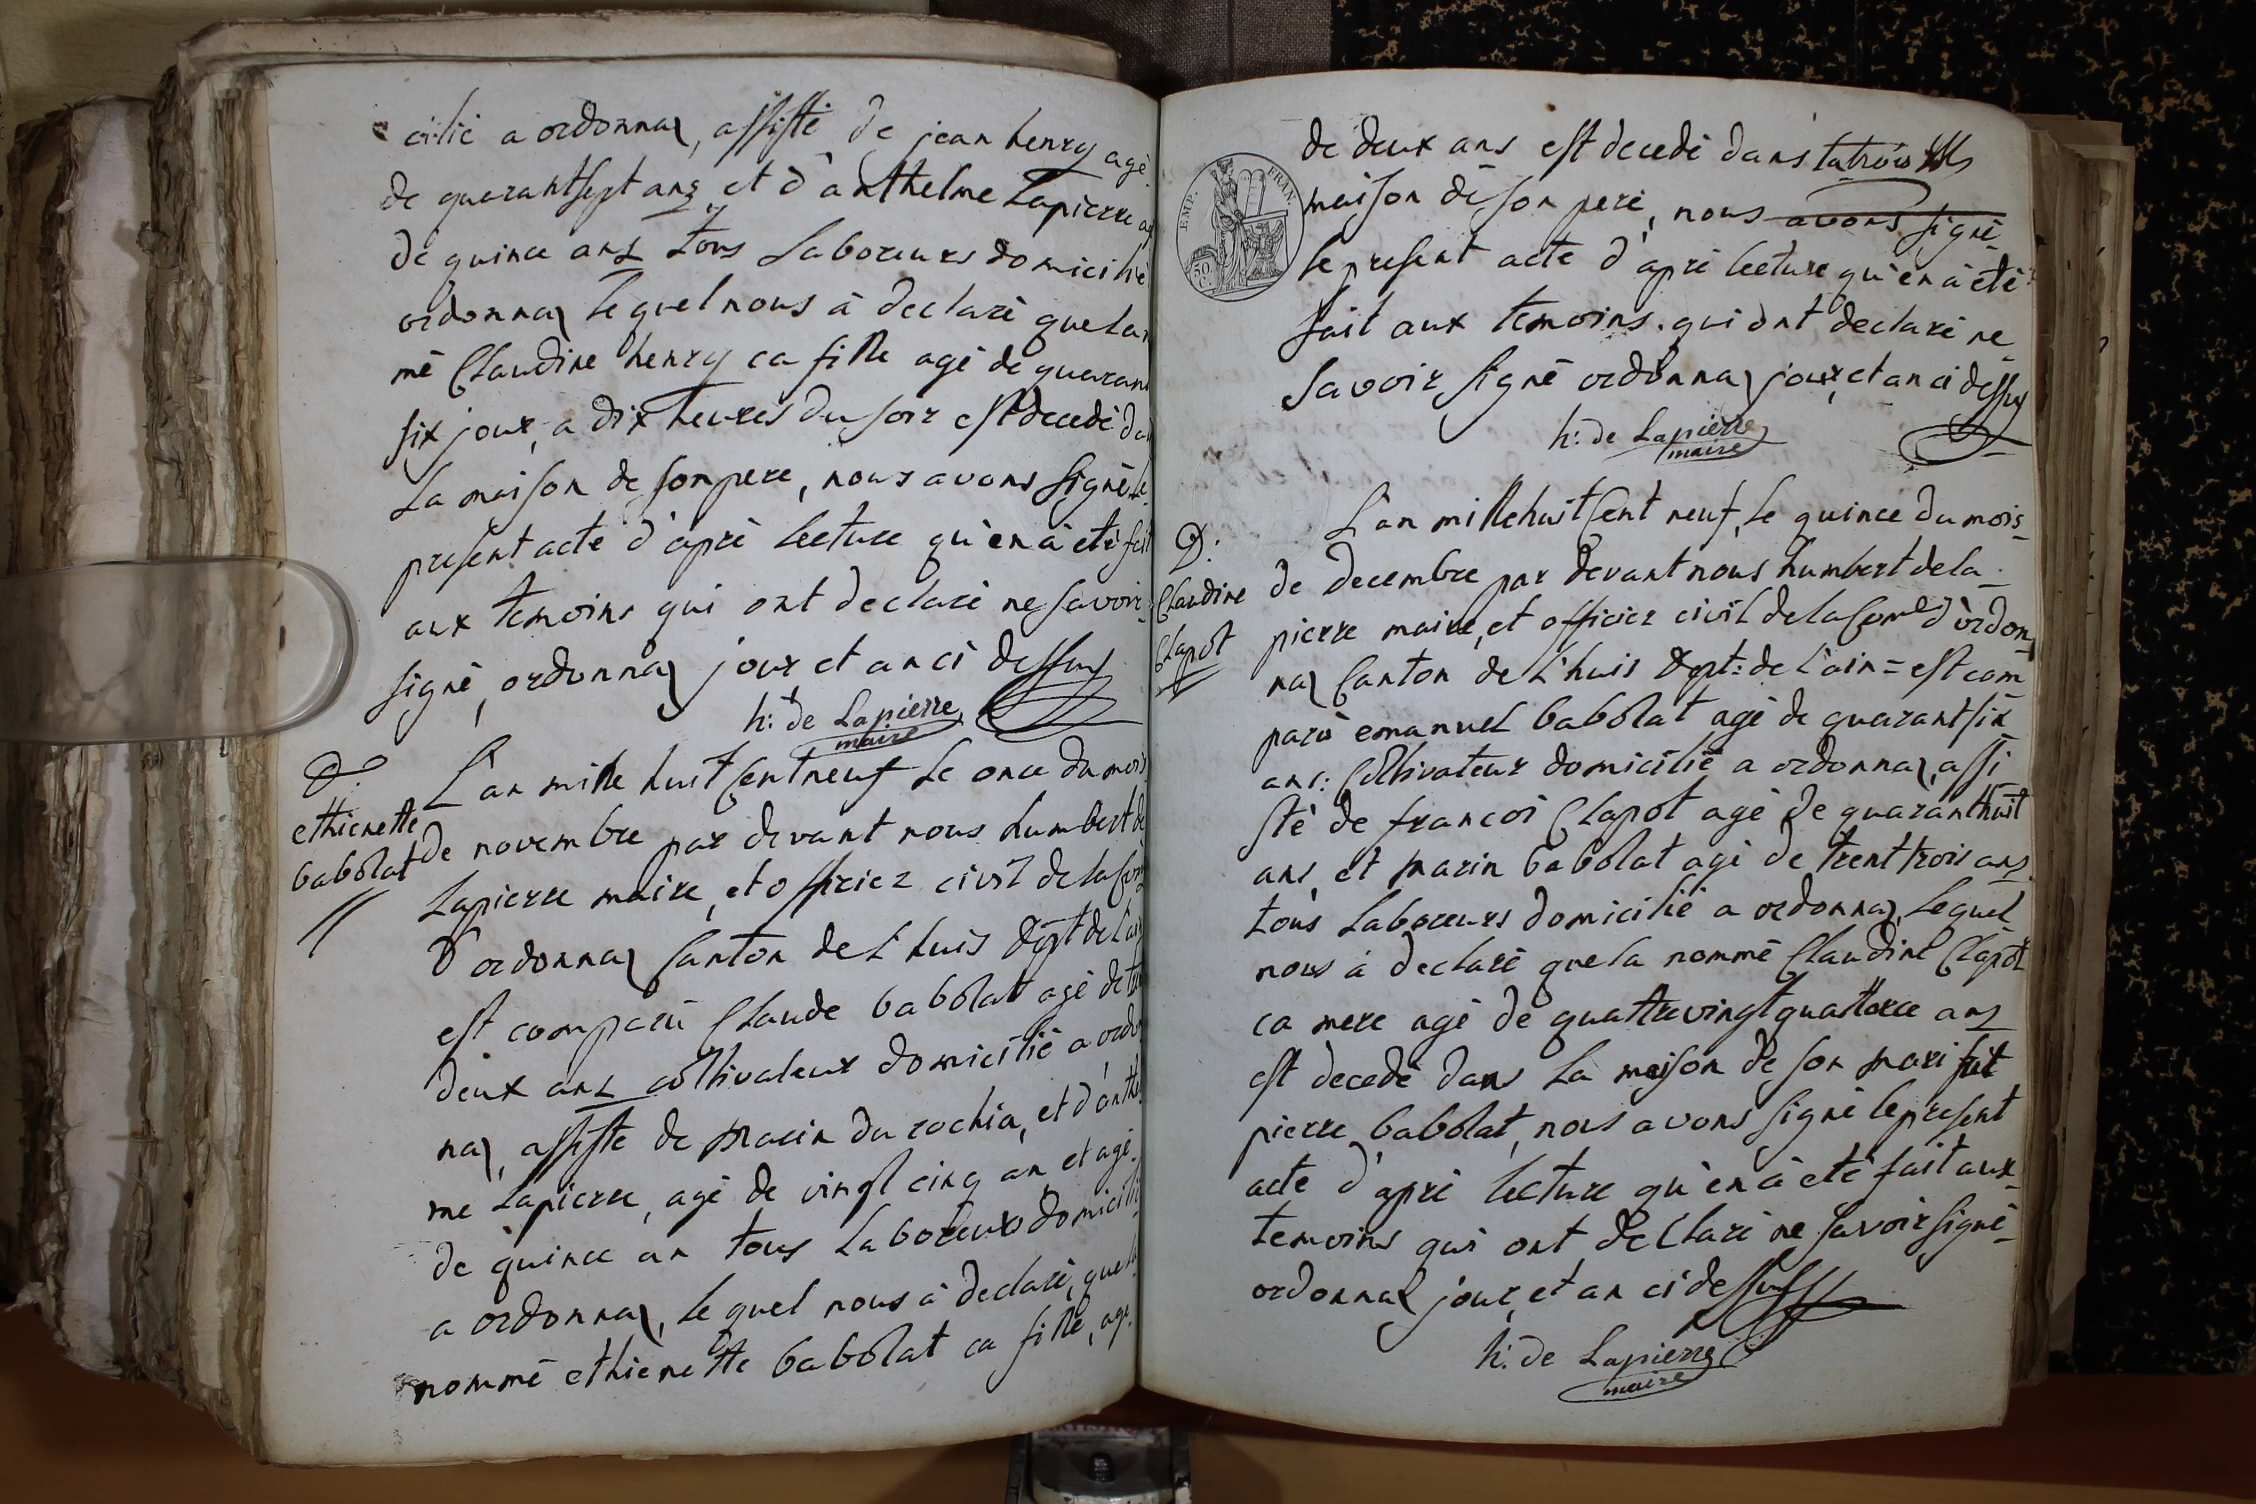 cilié a ordonnaz, assisté de jean henry agé
de quarantsept ans et d'anthelme Lapierre
de quince ans tous Laboreurs domicilié
ordonnaz lequel nous à declaré que la
mé Claudine henry ca fille agé de quarant
six jour, a dix heures du soir est decedé
La maison de son pere, nous avons signé le
present acte d'apré lecture qu'en à eté fait
aux temoins qui ont declaré ne savoir
signé, ordonnaz jour et an ci dessus
h: de Lapierre
maire
D:
ethienette
babolat
L'an mille huit cent neuf le once du mois
de novembre par devant nous humbert de
Lapierre maire, et officiez civil de la
d'ordonnaz Canton de L'huis dept de L'ain
est comparu Claude babolat agé de
deux ans coltivateur domicilié a ordon
naz, assisté de Marin du rochia, et d'anthel
me Lapierre, agé de vingt cinq an, et agé
de quince an tous Laboreurs domicilié
a ordonnaz, lequel nous à declaré, que la
nommé ethienette babolat ca fille, agé
EMP. FRAN.
50 C.
de deux ans est decedé dans
maison de son pere, nous avons signé
le present acte d'apré lecture qu'en à eté
fait aux temoins qui ont declaré ne
savoir signé ordonnaz jour, et an ci dessus
h: de Lapierre
maire
D:
Claudine
Clapot
L'an mille huit Cent neuf, le quince du mois
de decembre par devant nous humbert de la
pierre maire, et officiez civil de la Com d'ordon
naz Canton de L'huis Dept: de L'ain = est com
paru emanuel babolat agé de quarantsix
ans: Coltivateur domicilié a ordonnaz, assi
sté de francoi Clapot agé de quaranthuit
ans, et Marin babolat agé de trent trois ans
tous Laboreurs domicilié a ordonnaz, lequel
nous à declaré que la nommé Claudine Clapot
ca mere agé de quattrevingt quattorce ans
est decedé dans La maison de son mari fut
pierre babolat, nous avons signé le present
acte d'apré lecture qu'en à eté fait aux
temoins qui ont declaré ne savoir signé
ordonnaz jour, et an ci dessus
h: de Lapierre
maire